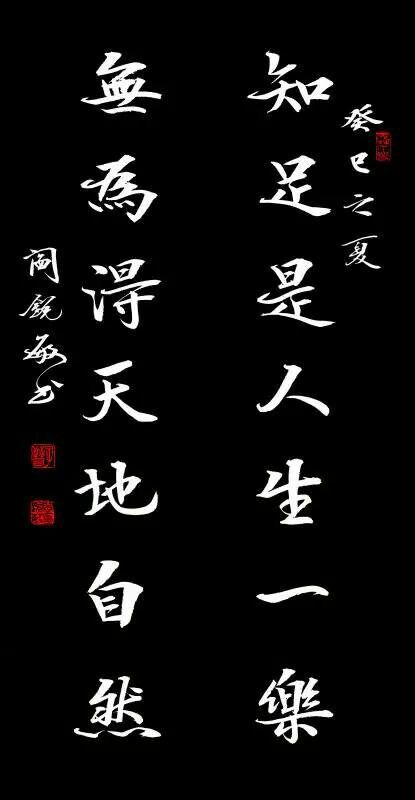 癸巳之夏
知足是人生一樂
無為得天地自然
阎锐敏书